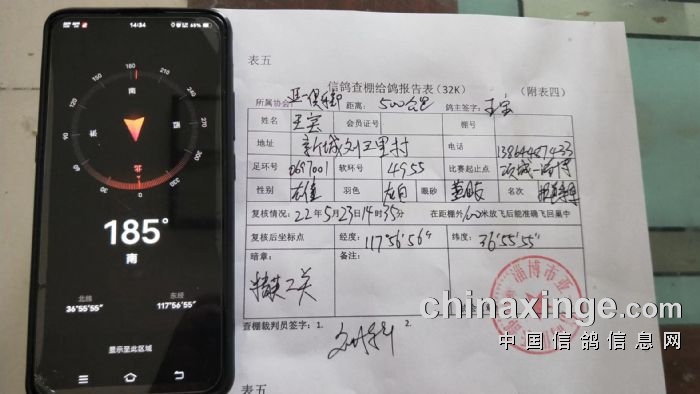 14:34
65%
180
210
240
300
330
南
西
东
北
185°
南
北纬
36°55'55"
东经
117°56'55"
显示至此区域
表五
信鸽查棚给鸽报告表(32K)
(附表四)
所属协会 距离: 500公里 鸽主签字: 王宝
姓名 王宝 会员证号 棚号
地址 新城刘卫里村 电话
足环号 0697001 软环号 4955 比赛起止点
性别 羽色 眼砂 名次
复核情况: 22年5月23日14时35分 在距棚外100米放飞后能准确飞回巢中
复核后坐标点 经度: 117°56'56" 纬度: 36°55'55"
暗章: 备注:
精英二关
查棚裁判员签字: 1. 2.
淄博市
chinaxinge.com
中国信鸽信息网
表五